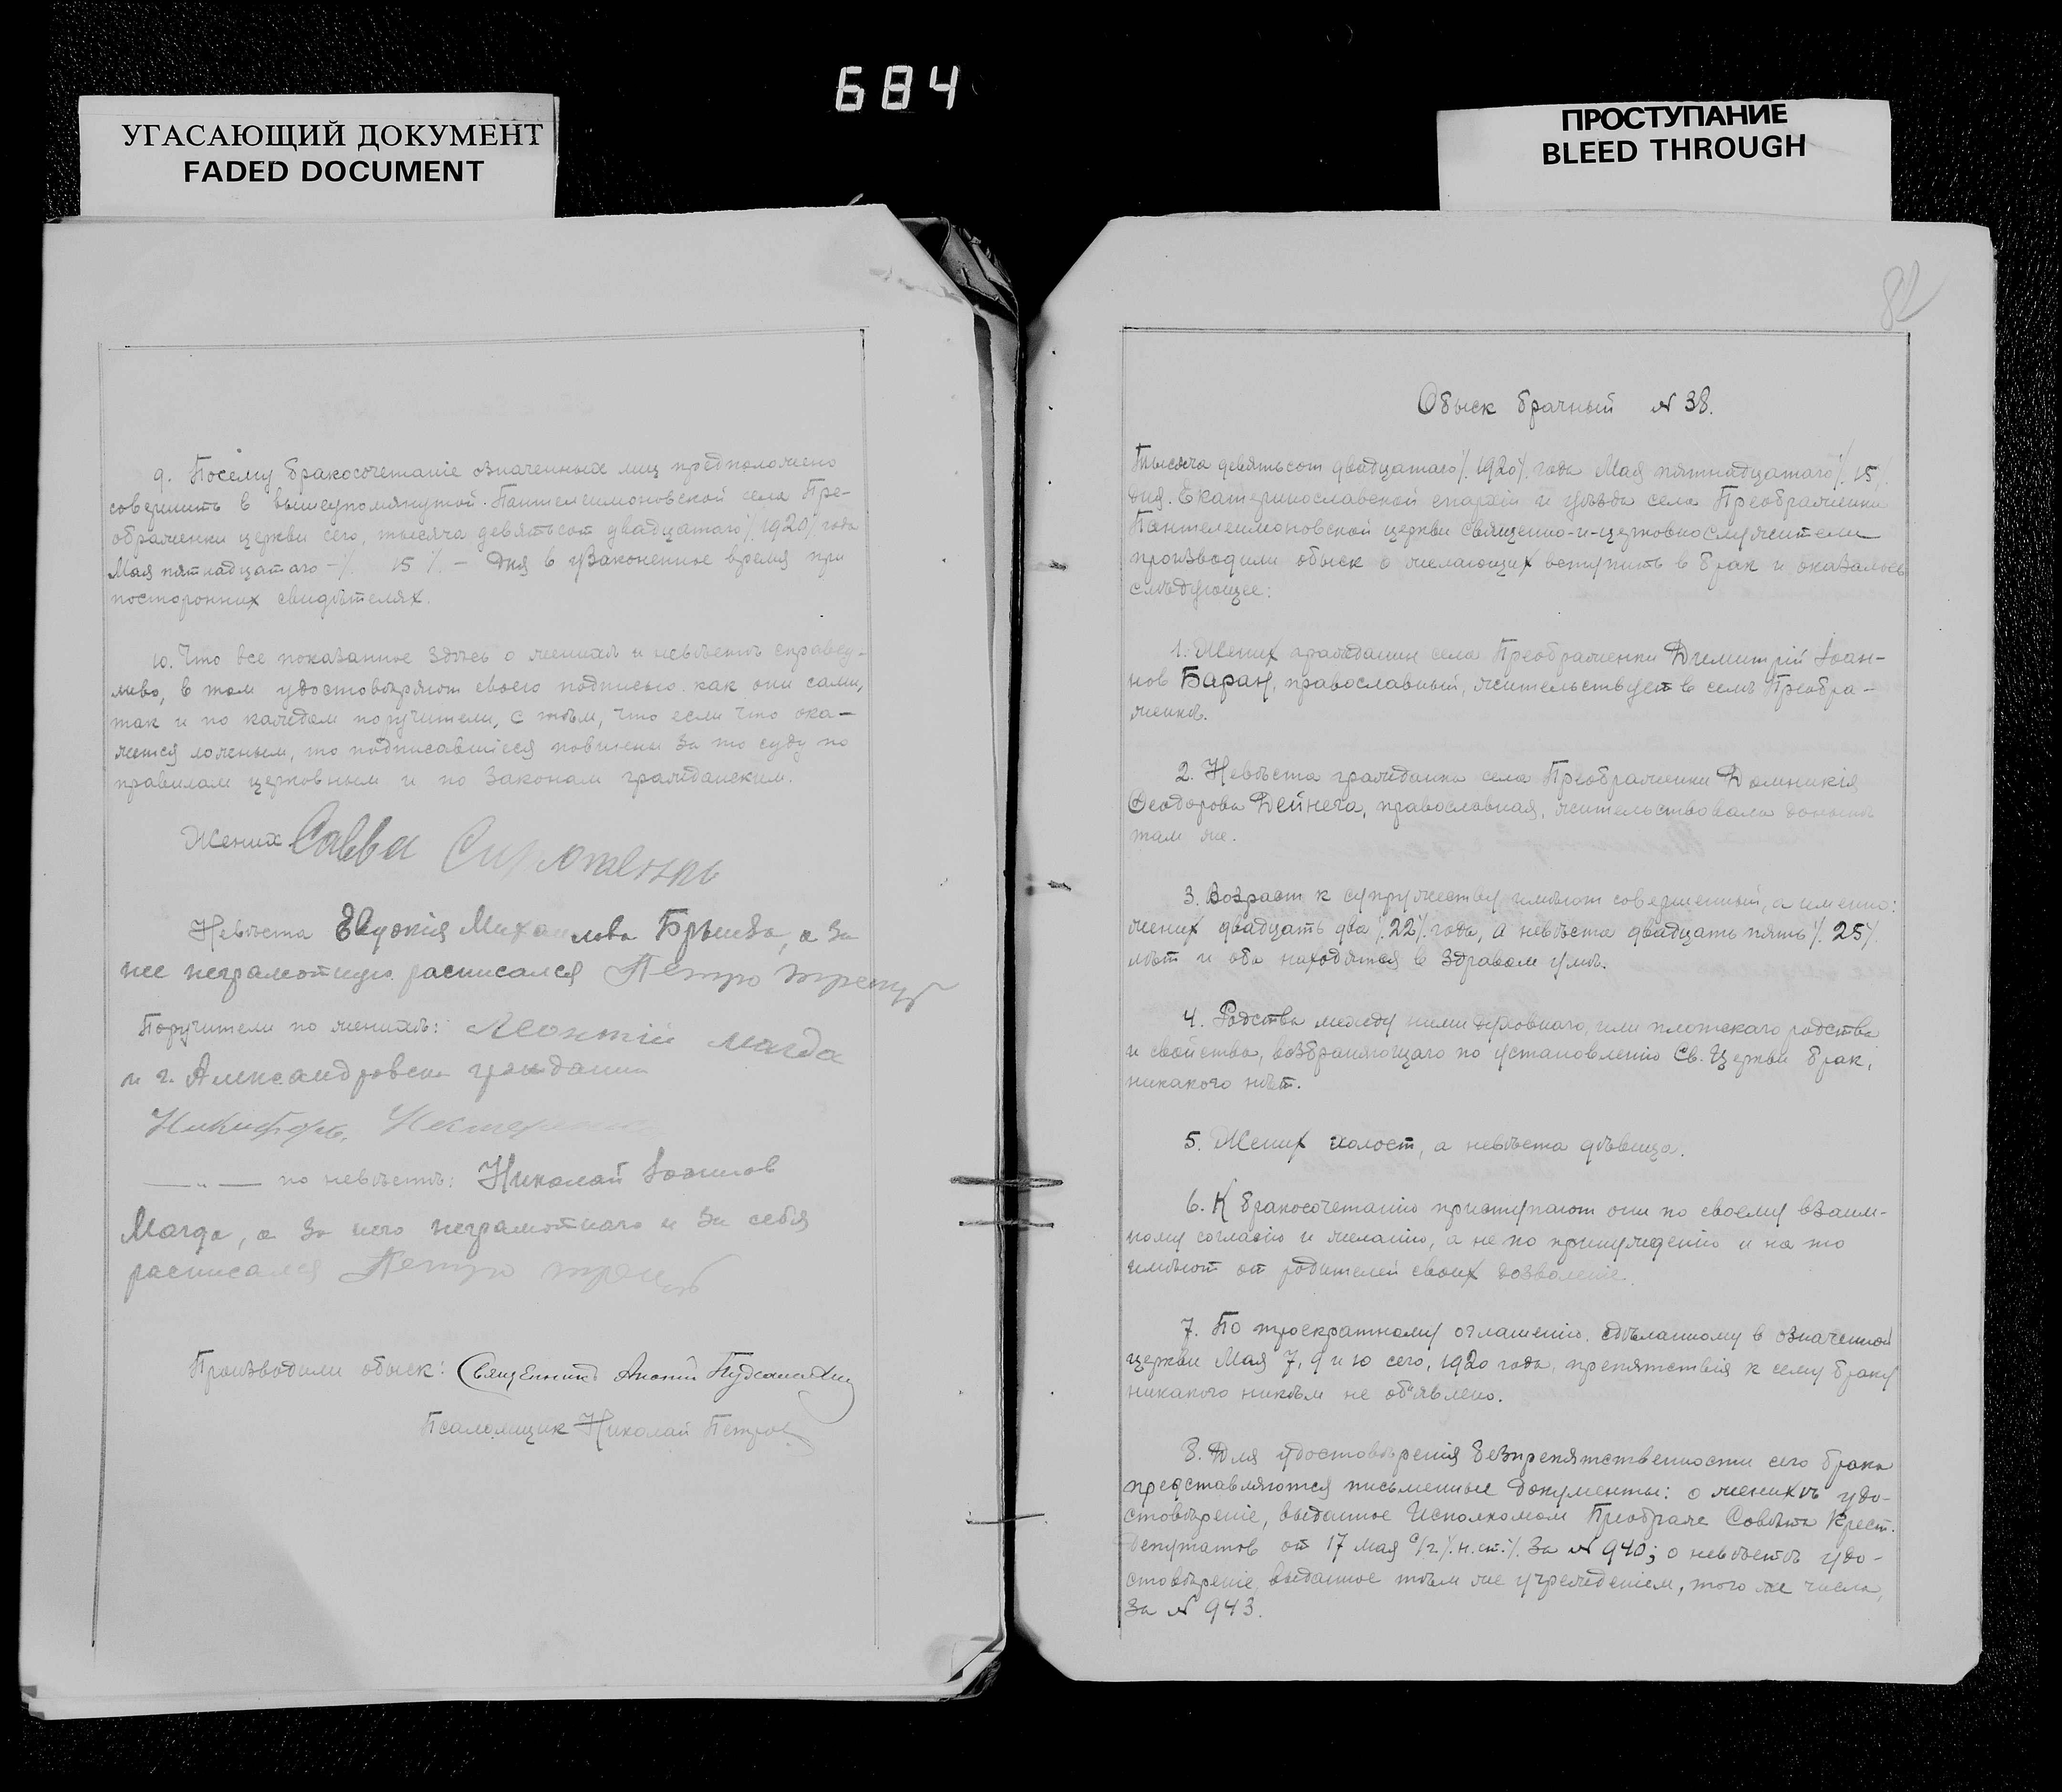 684
УГАСАЮЩИЙ ДОКУМЕНТ
FADED DOCUMENT
ПРОСТУПАНИЕ
BLEED THROUGH
9. Посему бракосочетаніе означенных лиц предположено
совершить в вышеупомянутой Пантелеимоновской села Пре-
ображенки церкви сего, тысяча девятьсот двадцатаго /.1920/ года
Мая пятнадцатаго -/. 15 /.- дня в узаконенное время при
посторонних свидѣтелях.
10. Что все показанное здѣсь о женихѣ и невѣстѣ справед-
ливо, в том удостовѣряют своею подписью как они сами,
так и по каждом поручители, с тѣм, что если что ока-
жется ложным, то подписавшіеся повинны за то суду по
правилам церковным и по законам гражданским.
Жених Савва
Невѣста Евдокія Михаилова, а за
нее неграмотную расписался Петро
Поручители по женихѣ: Леонтій Магда
и г. Александровска гражданин
Никифоръ
—„— по невѣстѣ: Николай Іоанов
Магда, а за него неграмотнаго и за себя
расписался Петро
Производили обыск: Священникъ
Псаломщик Николай Петров
82
Обыск брачный № 38.
Тысяча девятьсот двадцатаго /.1920/. года Мая пятнадцатаго /. 15 /.
дня. Екатеринославской епархіи и уѣзда села Преображенки
Пантелеимоновской церкви священно-и-церковнослужители
производили обыск о желающих вступить в брак и оказалось
слѣдующее:
1. Жених гражданин села Преображенки Димитрій Іоан-
нов Баран, православный, жительствует в селѣ Преобра-
женкѣ.
2. Невѣста гражданка села Преображенки Домникія
Феодорова Дейнега, православная, жительствовала донынѣ
там же.
3. Возраст к супружеству имѣют совершенный, а именно:
жених двадцать два /.22/. года, а невѣста двадцать пять /. 25/.
лѣт и оба находятся в здравом умѣ.
4. Родства между ними духовнаго, или плотскаго родства
и свойства, возбраняющаго по установленію Св. Церкви брак,
никакого нѣт.
5. Жених холост, а невѣста дѣвица.
6. К бракосочетанію приступают они по своему взаим-
ному согласію и желанію, а не по принужденію и на то
имѣют от родителей своих дозволеніе.
7. По троекратному оглашенію, сдѣланному в означенной
церкви Мая 7, 9 и 10 сего, 1920 года, препятствія к сему браку
никакого никѣм не объявлено.
8. Для удостовѣренія безпрепятственности сего брака
представляются письменные документы: о женихѣ удо-
стовѣреніе, выданное Исполкомом Преображ Совѣта Крест.
Депутатов от 17 мая с/г. /.н.ст./. за № 940; о невѣстѣ удо-
стовѣреніе, выданное тѣм же учрежденіем, того же числа,
за № 943.